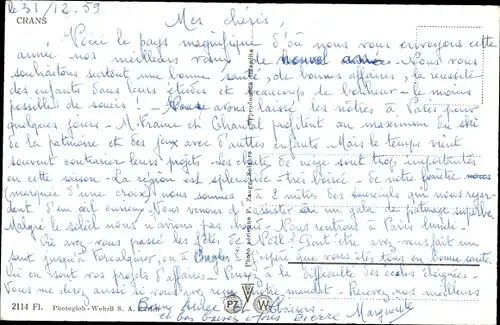 le 31/12-59
CRANS
Mes chéris,
Voici le pays magnifique d'où nous vous envoyons cette
année nos meilleurs vœux de nouvel année. Nous vous
souhaitons surtout une bonne santé, de bonnes affaires, la réussite
des enfants dans leurs études et beaucoup de bonheur - le moins
possible de soucis! - Nous avons laissé les nôtres à Paris pour
quelques jours - M. France et Chantal profitent au maximum du ski
de la patinoire et des jeux avec d'autres enfants. Mais le temps vient
souvent contrarier leurs projets - les chutes de neige sont trop importantes
en cette saison - La région est splendide très boisée - de notre fenêtre
(marquée d'une croix) nous sommes à 2 mètres des qui nous regardent
d'un œil curieux. Nous venons d'assister à un gala de patinage superbe.
Malgré le soleil nous n'avons pas - Nous rentrons à Paris lundi -
Où avez vous passé les fêtes de Noël? Peut être avez vous fait un
saut jusqu'à Forcalquier, ou à - J'espère que vous êtes tous en bonne santé.
Où en sont vos projets d'affaires - Pensez à la difficulté des écoles éloignées.
Vous me direz aussi si vous avez reçu - Recevez nos meilleurs
Bonne année et baisers - Marguerite
et bons baisers à tous Pierre
2114 Fl. Photoglob-Wehrli S. A.
PZ W